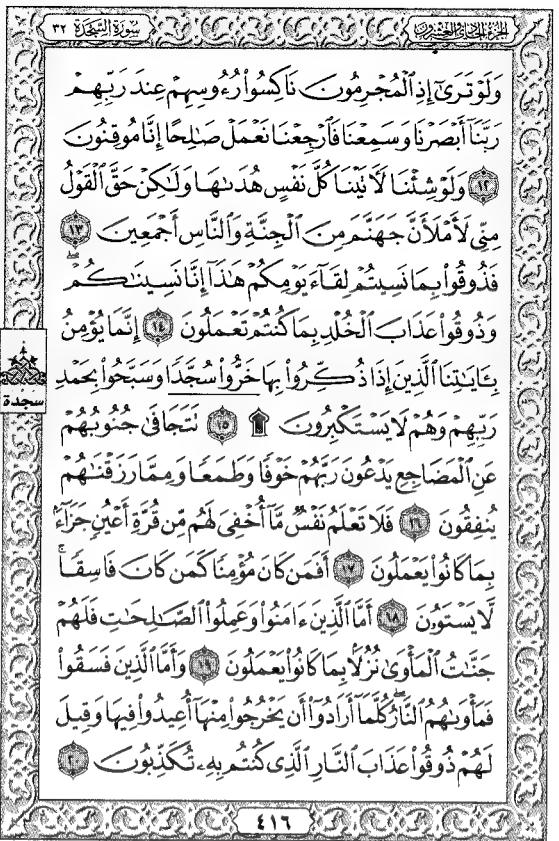 الجزء الحادي والعشرون
سورة السجدة ٣٢
وَلَوْ تَرَىٰٓ إِذِ ٱلْمُجْرِمُونَ نَاكِسُوا۟ رُءُوسِهِمْ عِندَ رَبِّهِمْ
رَبَّنَآ أَبْصَرْنَا وَسَمِعْنَا فَٱرْجِعْنَا نَعْمَلْ صَٰلِحًا إِنَّا مُوقِنُونَ
١٢ وَلَوْ شِئْنَا لَءَاتَيْنَا كُلَّ نَفْسٍ هُدَىٰهَا وَلَٰكِنْ حَقَّ ٱلْقَوْلُ
مِنِّى لَأَمْلَأَنَّ جَهَنَّمَ مِنَ ٱلْجِنَّةِ وَٱلنَّاسِ أَجْمَعِينَ ١٣
فَذُوقُوا۟ بِمَا نَسِيتُمْ لِقَآءَ يَوْمِكُمْ هَٰذَآ إِنَّا نَسِينَٰكُمْ ۖ
وَذُوقُوا۟ عَذَابَ ٱلْخُلْدِ بِمَا كُنتُمْ تَعْمَلُونَ ١٤ إِنَّمَا يُؤْمِنُ
بِـَٔايَٰتِنَا ٱلَّذِينَ إِذَا ذُكِّرُوا۟ بِهَا خَرُّوا۟ سُجَّدًا وَسَبَّحُوا۟ بِحَمْدِ
سجدة
رَبِّهِمْ وَهُمْ لَا يَسْتَكْبِرُونَ ۩ ١٥ تَتَجَافَىٰ جُنُوبُهُمْ
عَنِ ٱلْمَضَاجِعِ يَدْعُونَ رَبَّهُمْ خَوْفًا وَطَمَعًا وَمِمَّا رَزَقْنَٰهُمْ
يُنفِقُونَ ١٦ فَلَا تَعْلَمُ نَفْسٌ مَّآ أُخْفِىَ لَهُم مِّن قُرَّةِ أَعْيُنٍ جَزَآءًۢ
بِمَا كَانُوا۟ يَعْمَلُونَ ١٧ أَفَمَن كَانَ مُؤْمِنًا كَمَن كَانَ فَاسِقًا ۚ
لَّا يَسْتَوُۥنَ ١٨ أَمَّا ٱلَّذِينَ ءَامَنُوا۟ وَعَمِلُوا۟ ٱلصَّٰلِحَٰتِ فَلَهُمْ
جَنَّٰتُ ٱلْمَأْوَىٰ نُزُلًۢا بِمَا كَانُوا۟ يَعْمَلُونَ ١٩ وَأَمَّا ٱلَّذِينَ فَسَقُوا۟
فَمَأْوَىٰهُمُ ٱلنَّارُ ۖ كُلَّمَآ أَرَادُوٓا۟ أَن يَخْرُجُوا۟ مِنْهَآ أُعِيدُوا۟ فِيهَا وَقِيلَ
لَهُمْ ذُوقُوا۟ عَذَابَ ٱلنَّارِ ٱلَّذِى كُنتُم بِهِۦ تُكَذِّبُونَ ٢٠
٤١٦